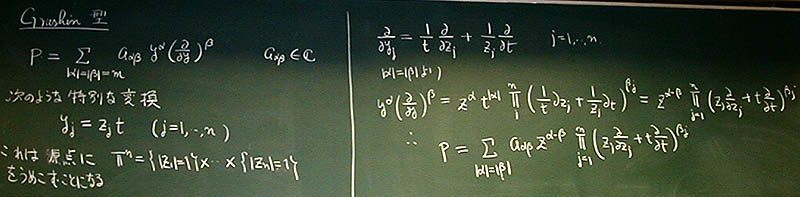 Grushin 型
P = Σ_{|α|=|β|=m} a_{αβ} y^α (∂/∂y)^β   a_{αβ} ∈ ℂ
次のような特別な変換
y_j = z_j t   (j=1,‥,n)
これは 源点に 𝕋^n = {|z_1|=1}×‥×{|z_n|=1}
をうめこむことになる
∂/∂y_j = 1/t ∂/∂z_j + 1/z_j ∂/∂t   j=1,‥,n
|α|=|β| より
y^α (∂/∂y)^β = z^α t^{|α|} ∏_{j}^{n} (1/t ∂z_j + 1/z_j ∂t)^{β_j} = z^{α-β} ∏_{j=1}^{n} (z_j ∂/∂z_j + t ∂/∂t)^{β_j}
∴ P = Σ_{|α|=|β|} a_{αβ} z^{α-β} ∏_{j=1}^{n} (z_j ∂/∂z_j + t ∂/∂t)^{β_j}